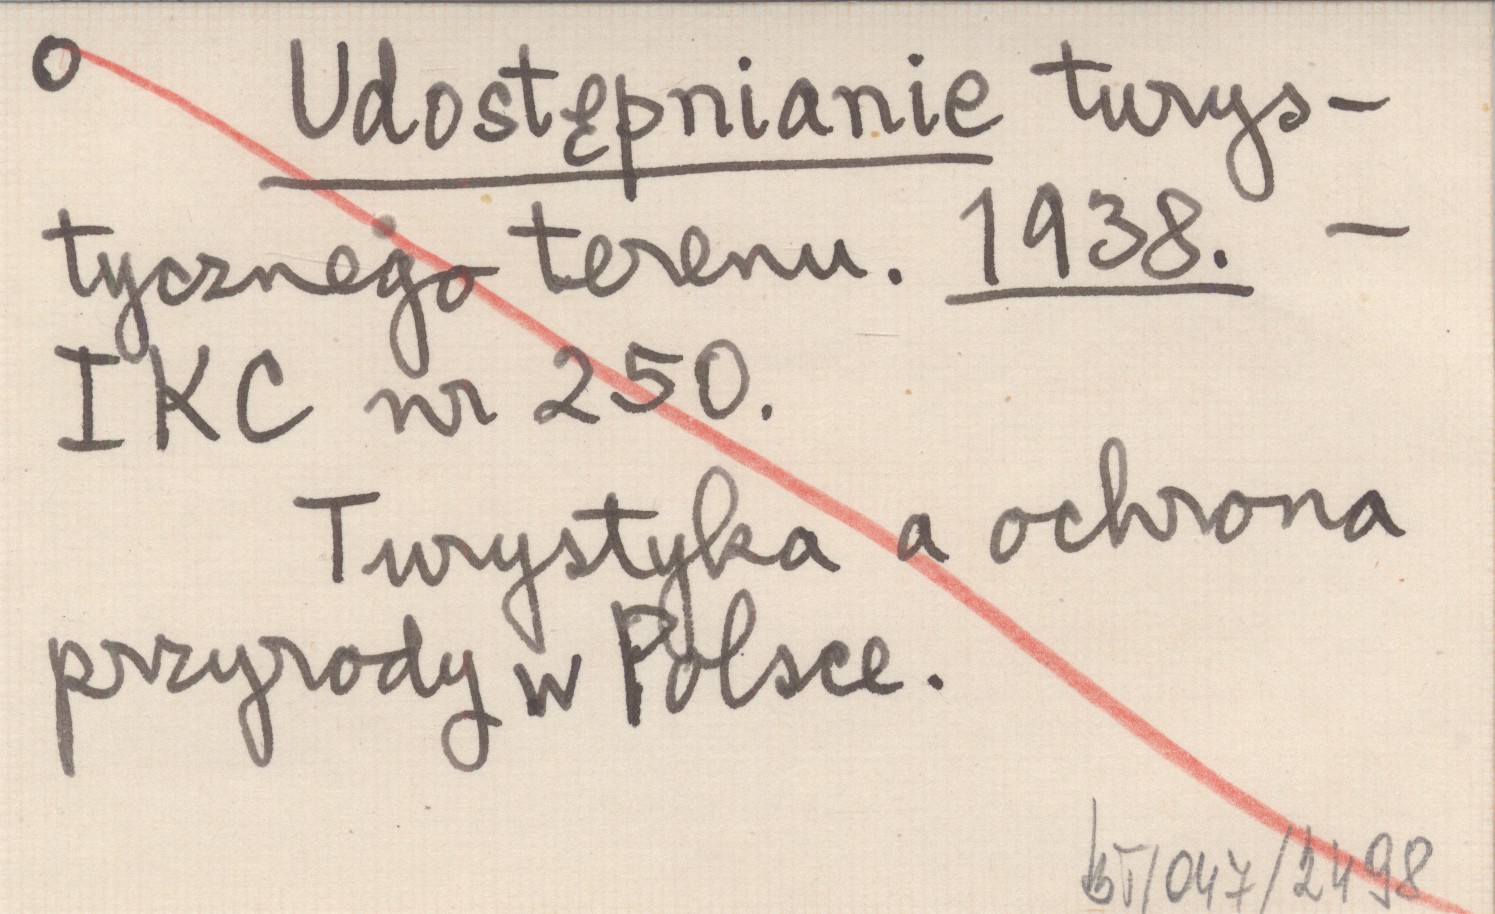 o Udostępnianie turys-
tycznego terenu. 1938. -
IKC nr 250.
Turystyka a ochrona
przyrody w Polsce.
bT/047/2498